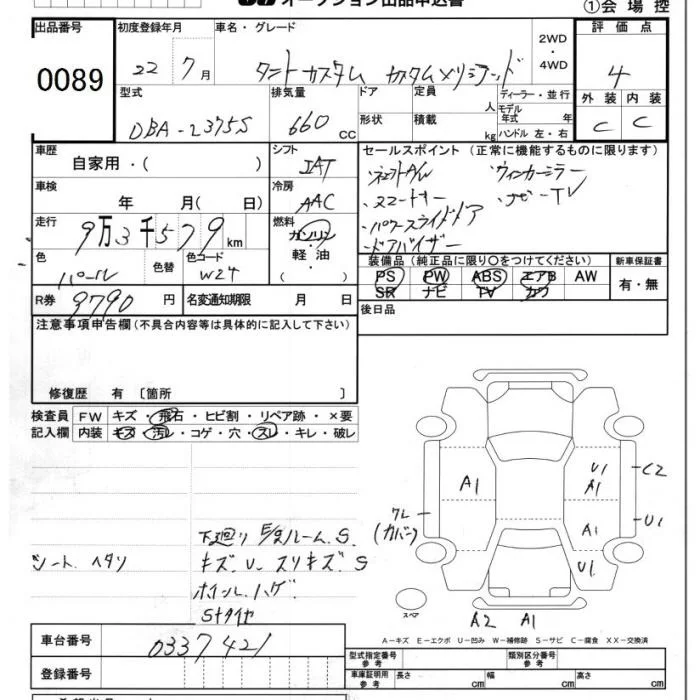 オークション出品申込書
①会場控
出品番号
0089
初度登録年月
22年7月
車名・グレード
タントカスタム カスタムXリミテッド
2WD・4WD
評価点
4
型式
DBA-L375S
排気量
660 cc
ドア
形状
定員 人
積載 kg
ディーラー・並行
モデル年式 年
ハンドル 左・右
外装 内装
C C
車歴
自家用・( )
シフト
IAT
セールスポイント (正常に機能するものに限ります)
・スマートキー
・パワースライドドア
・ドアバイザー
・ウィンカーミラー
・ナビーTV
車検
年 月( 日)
冷房
AAC
走行
9万3千579km
燃料
ガソリン
軽油
( )
色
パール
色替
色コード
W24
装備品 (純正品に限り○をつけてください)
PS PW ABS エアB AW
SR ナビ TV カワ
新車保証書
有・無
R券
9790円
名変通知期限 月 日
後日品
注意事項申告欄(不具合内容等は具体的に記入して下さい)
修復歴 有 〔箇所 〕
検査員記入欄
FW キズ・飛石・ヒビ割・リペア跡・×要
内装 キズ・汚レ・コゲ・穴・スレ・キレ・破レ
シートヘタリ
下廻り E/gルーム.S.
キズ.U.スリキズ.S
ホイル.ハゲ.
Sタイヤ
A1
U1
A1
C2
A1
U1
U1
ワレ
(カバー)
スペア
A2 A1
A-キズ E-エクボ U-凹み W-補修跡 S-サビ C-腐食 XX-交換済
車台番号
0337421
登録番号
型式指定番号 参考
類別区分番号 参考
車庫証明用 参考
長さ cm
幅 cm
高さ cm